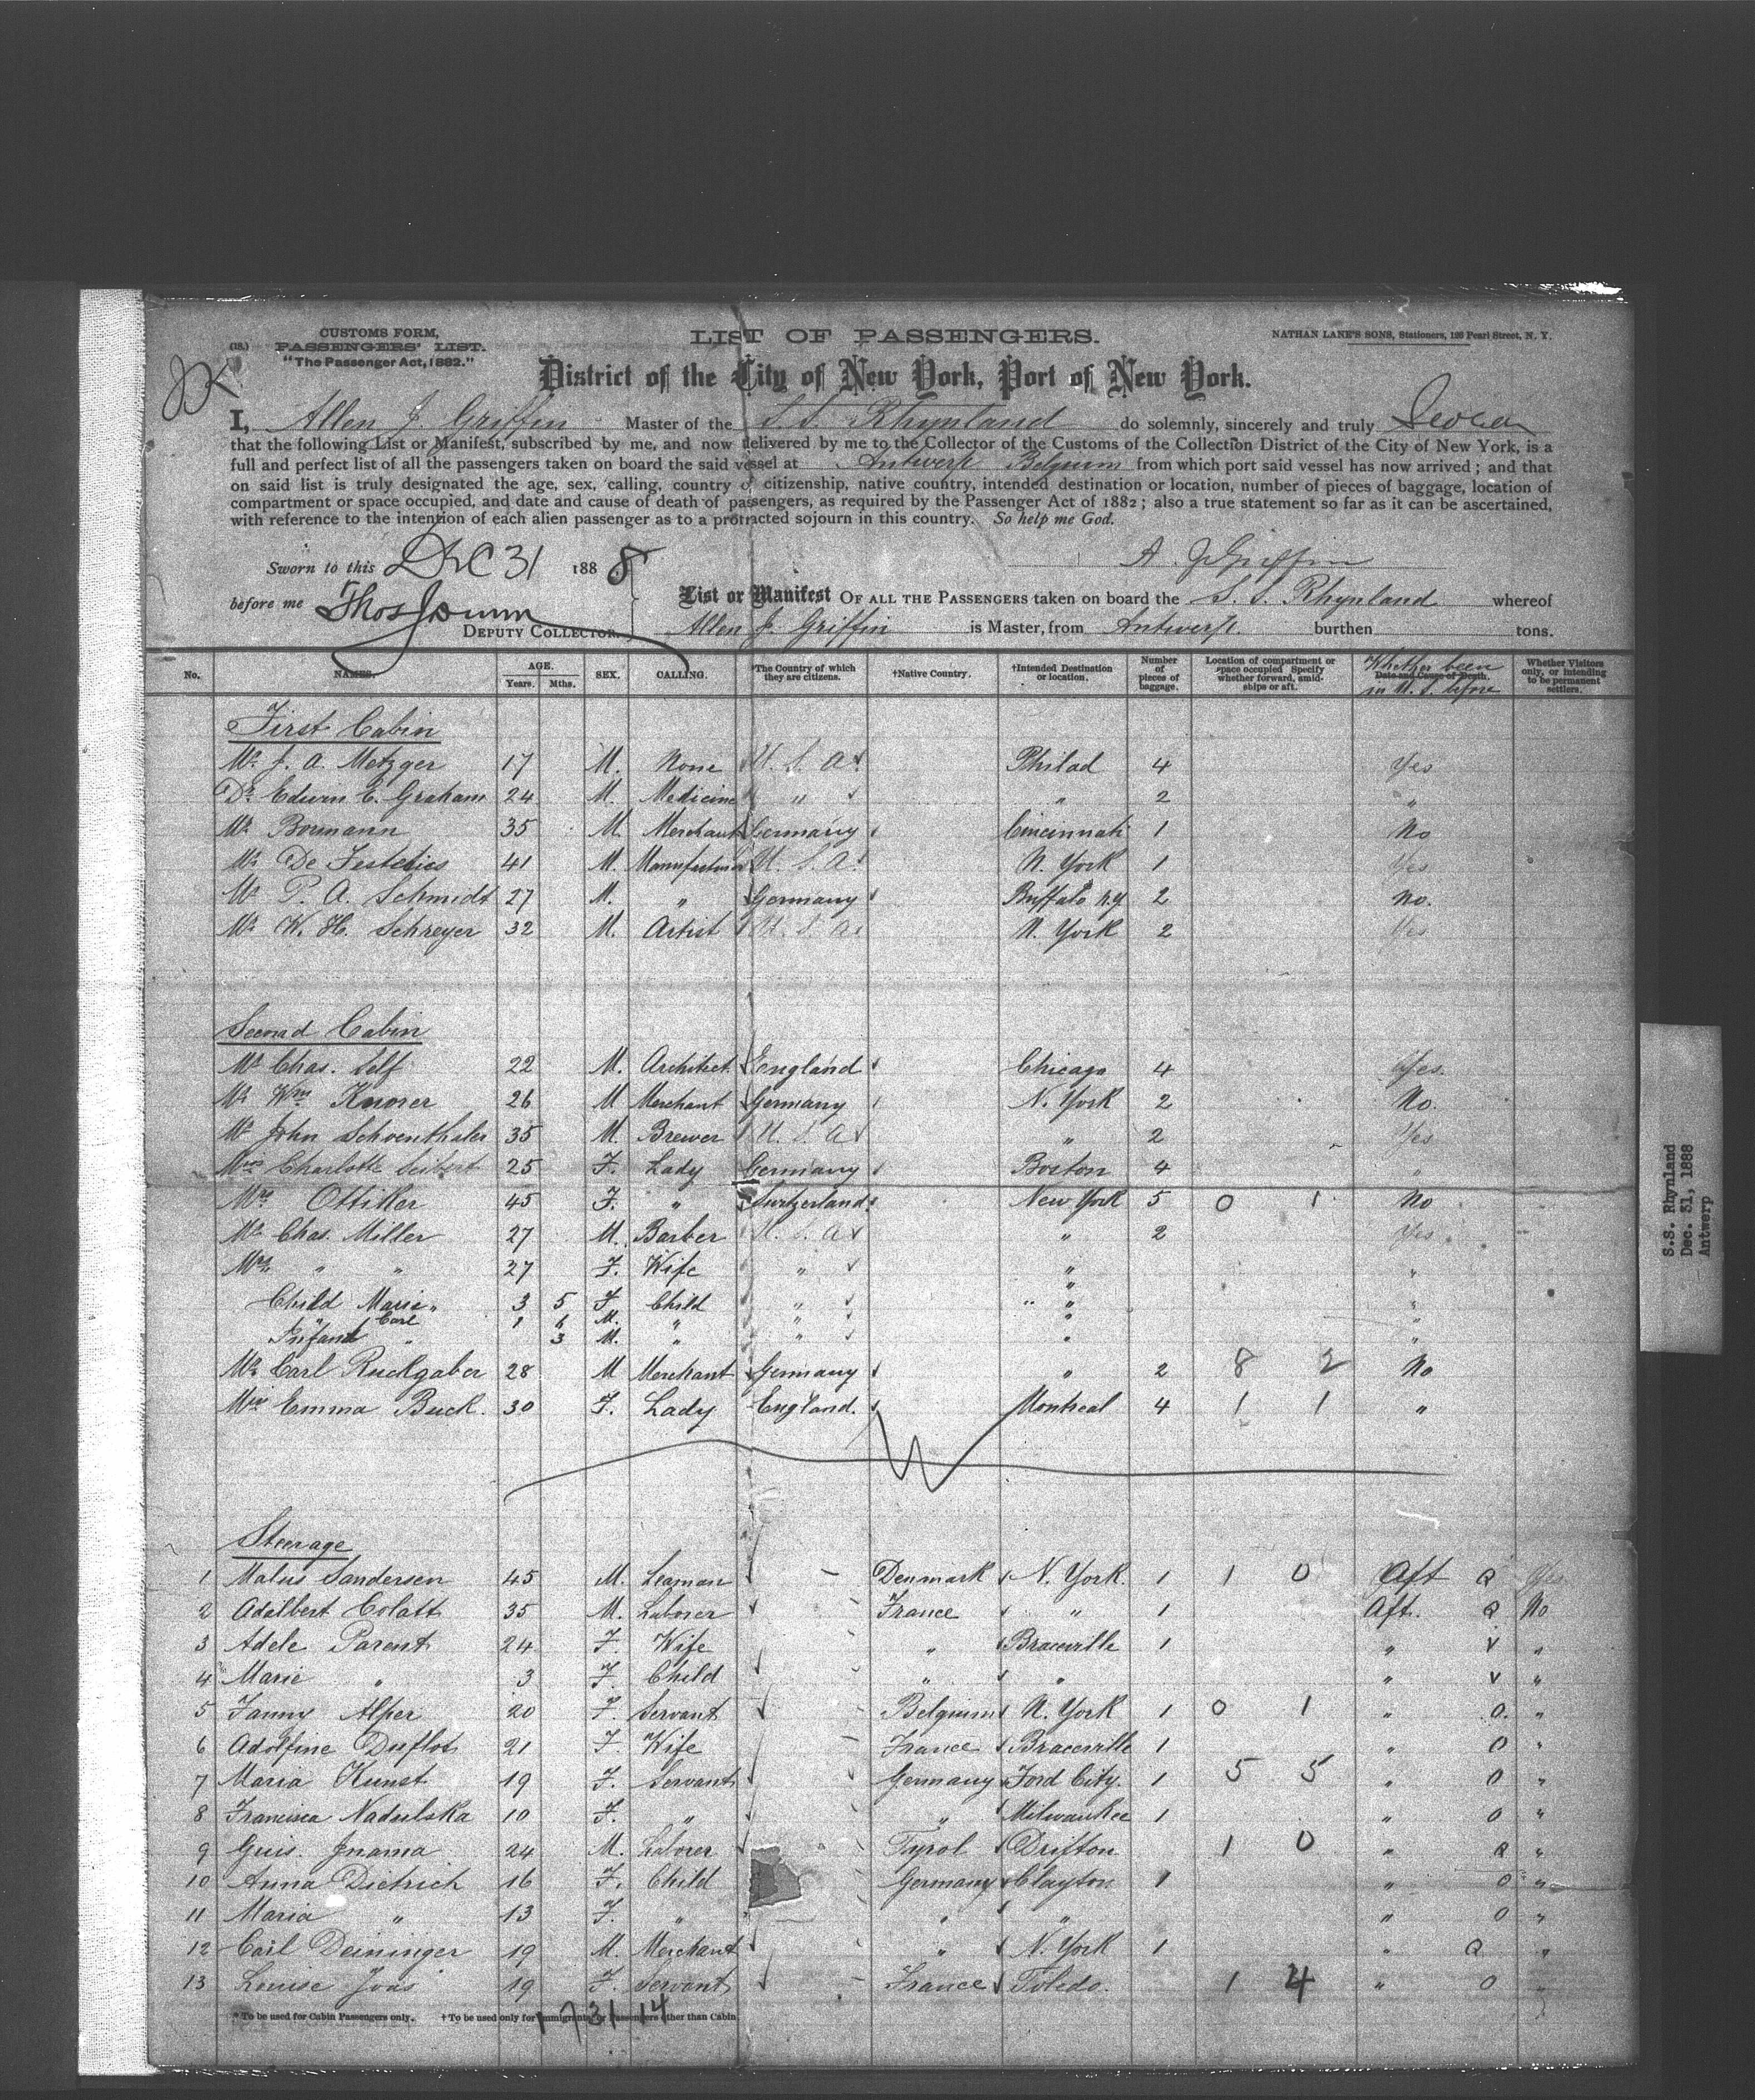 CUSTOMS FORM,
(18.) PASSENGERS' LIST.
"The Passenger Act, 1882."
LIST OF PASSENGERS.
NATHAN LANE'S SONS, Stationers, 128 Pearl Street, N. Y.
District of the City of New York, Port of New York.
I, Allen J. Griffin Master of the S.S. Rhynland do solemnly, sincerely and truly Swear
that the following List or Manifest, subscribed by me, and now delivered by me to the Collector of the Customs of the Collection District of the City of New York, is a
full and perfect list of all the passengers taken on board the said vessel at Antwerp Belgium from which port said vessel has now arrived; and that
on said list is truly designated the age, sex, calling, country of citizenship, native country, intended destination or location, number of pieces of baggage, location of
compartment or space occupied, and date and cause of death of passengers, as required by the Passenger Act of 1882; also a true statement so far as it can be ascertained,
with reference to the intention of each alien passenger as to a protracted sojourn in this country. So help me God.
A. J. Griffin
Sworn to this DEC 31 1888
before me
DEPUTY COLLECTOR.
List or Manifest OF ALL THE PASSENGERS taken on board the S. S. Rhynland whereof
Allen J. Griffin is Master, from Antwerp. burthen tons.
No. NAMES. AGE. Years. Mths. SEX. CALLING. *The Country of which they are citizens. †Native Country. †Intended Destination or location. Number of pieces of baggage. Location of compartment or space occupied Specify whether forward, amidships or aft. Date and Cause of Death. Whether been in U. S. before Whether Visitors only, or intending to be permanent settlers.
First Cabin
Mr. J. A. Metzger 17 M. None U. S. A. Philad 4 Yes
Dr. Edwin E. Graham 24 M. Medicine " " 2 "
Mr. Bormann 35 M. Merchant Germany Cincinnati 1 No
Mr. De Festetics 41 M. Manufacturer U. S. A. N. York 1 Yes
Mr. P. A. Schmidt 27 M. " Germany Buffalo N.Y 2 No.
Mr. W. H. Schreyer 32 M. Artist U. S. A. N. York 2 Yes
Second Cabin
Mr. Chas. Self 22 M. Architect England Chicago 4 Yes.
Mr. Wm. Knorer 26 M Merchant Germany N. York 2 No.
Mr. John Schoenthaler 35 M. Brewer U. S. A " 2 Yes
Miss Charlotte Seibert 25 F. Lady Germany Boston 4 "
Mrs. Ottiker 45 F. " Switzerland New York 5 0 1 No
Mr. Chas. Miller 27 M. Barber U. S. A " 2 Yes
Mrs. " " 27 F. Wife " " "
Child Marie " 3 5 F. Child " " "
" Carl 1 6 M. " " " "
Infant " 3 M. " " " "
Mr. Carl Ruckgaber 28 M Merchant Germany " 2 8 2 No
Miss Emma Buck. 30 F. Lady England. Montreal 4 1 1 "
Steerage
1 Malus Sandersen 45 M. Seaman Denmark N. York. 1 1 0 Aft Q Yes
2 Adalbert Colatt 35 M. Laborer France " 1 Aft. Q No
3 Adele Parent 24 F. Wife " Braceville 1 " v "
4 Marie " 3 F. Child " " " v "
5 Fanny Alper 20 F. Servant Belgium N. York 1 0 1 " 0. "
6 Adolfine Duflot 21 F. Wife France Braceville 1 " 0 "
7 Maria Kunst 19 F. Servant Germany Ford City. 1 5 5 " 0 "
8 Francisca Nadulska 10 F. " " Milwaukee 1 " 0 "
9 Guis. Inama 24 M. Laborer Tyrol Drifton 1 0 " Q "
10 Anna Dietrich 16 F. Child Germany Clayton 1 " 0 "
11 Maria " 13 F. " " " " 0 "
12 Carl Deininger 19 M. Merchant " N. York 1 " Q "
13 Louise Joas 19 F. Servant France Toledo. 1 4 " 0 "
* To be used for Cabin Passengers only. † To be used only for Immigrants or Passengers other than Cabin
1 7 31 14
S.S. Rhynland
Dec. 31, 1888
Antwerp